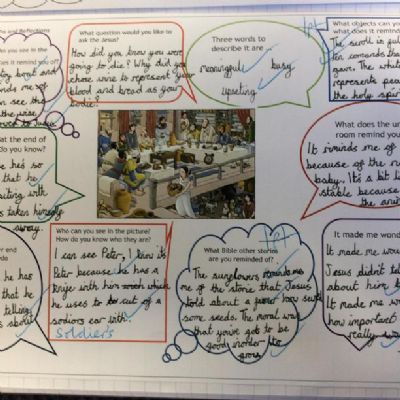 What question would you like to
ask the Jesus?
How did you know you were
going to die? Why did you
chose wine to represent your
blood and bread as your
bodie?
Three words to
describe it are
meaningful
busy
upsetting
1pt
What objects can you
what does it remind
The scroll is
ten comands that
represents
the holy spir
you see in the
boat and
me of
see the
at the end of
do you know?
he's so
that he
iting with
taken himself
away.
What does the un
room remind you
It riminds me of
because of the
baby. It's a bit li
stable because
the ani
Who can you see in the picture?
How do you know who they are?
I can see Peter, I know its
Peter because he has a
knife with him which
he uses to cut of a
sodiors ear with.
Soldiers
What Bible other stories
are you reminded of?
1pt
The sunflowers reminds me
me of the storie that Jesus
told about a how
some seeds. The moral was
that you've got to be
good inorder to
grow.
It made me wond
It made me wou
Jesus didn't tell
about him
It made me w
how important
really
end
he has
that he
telling
about